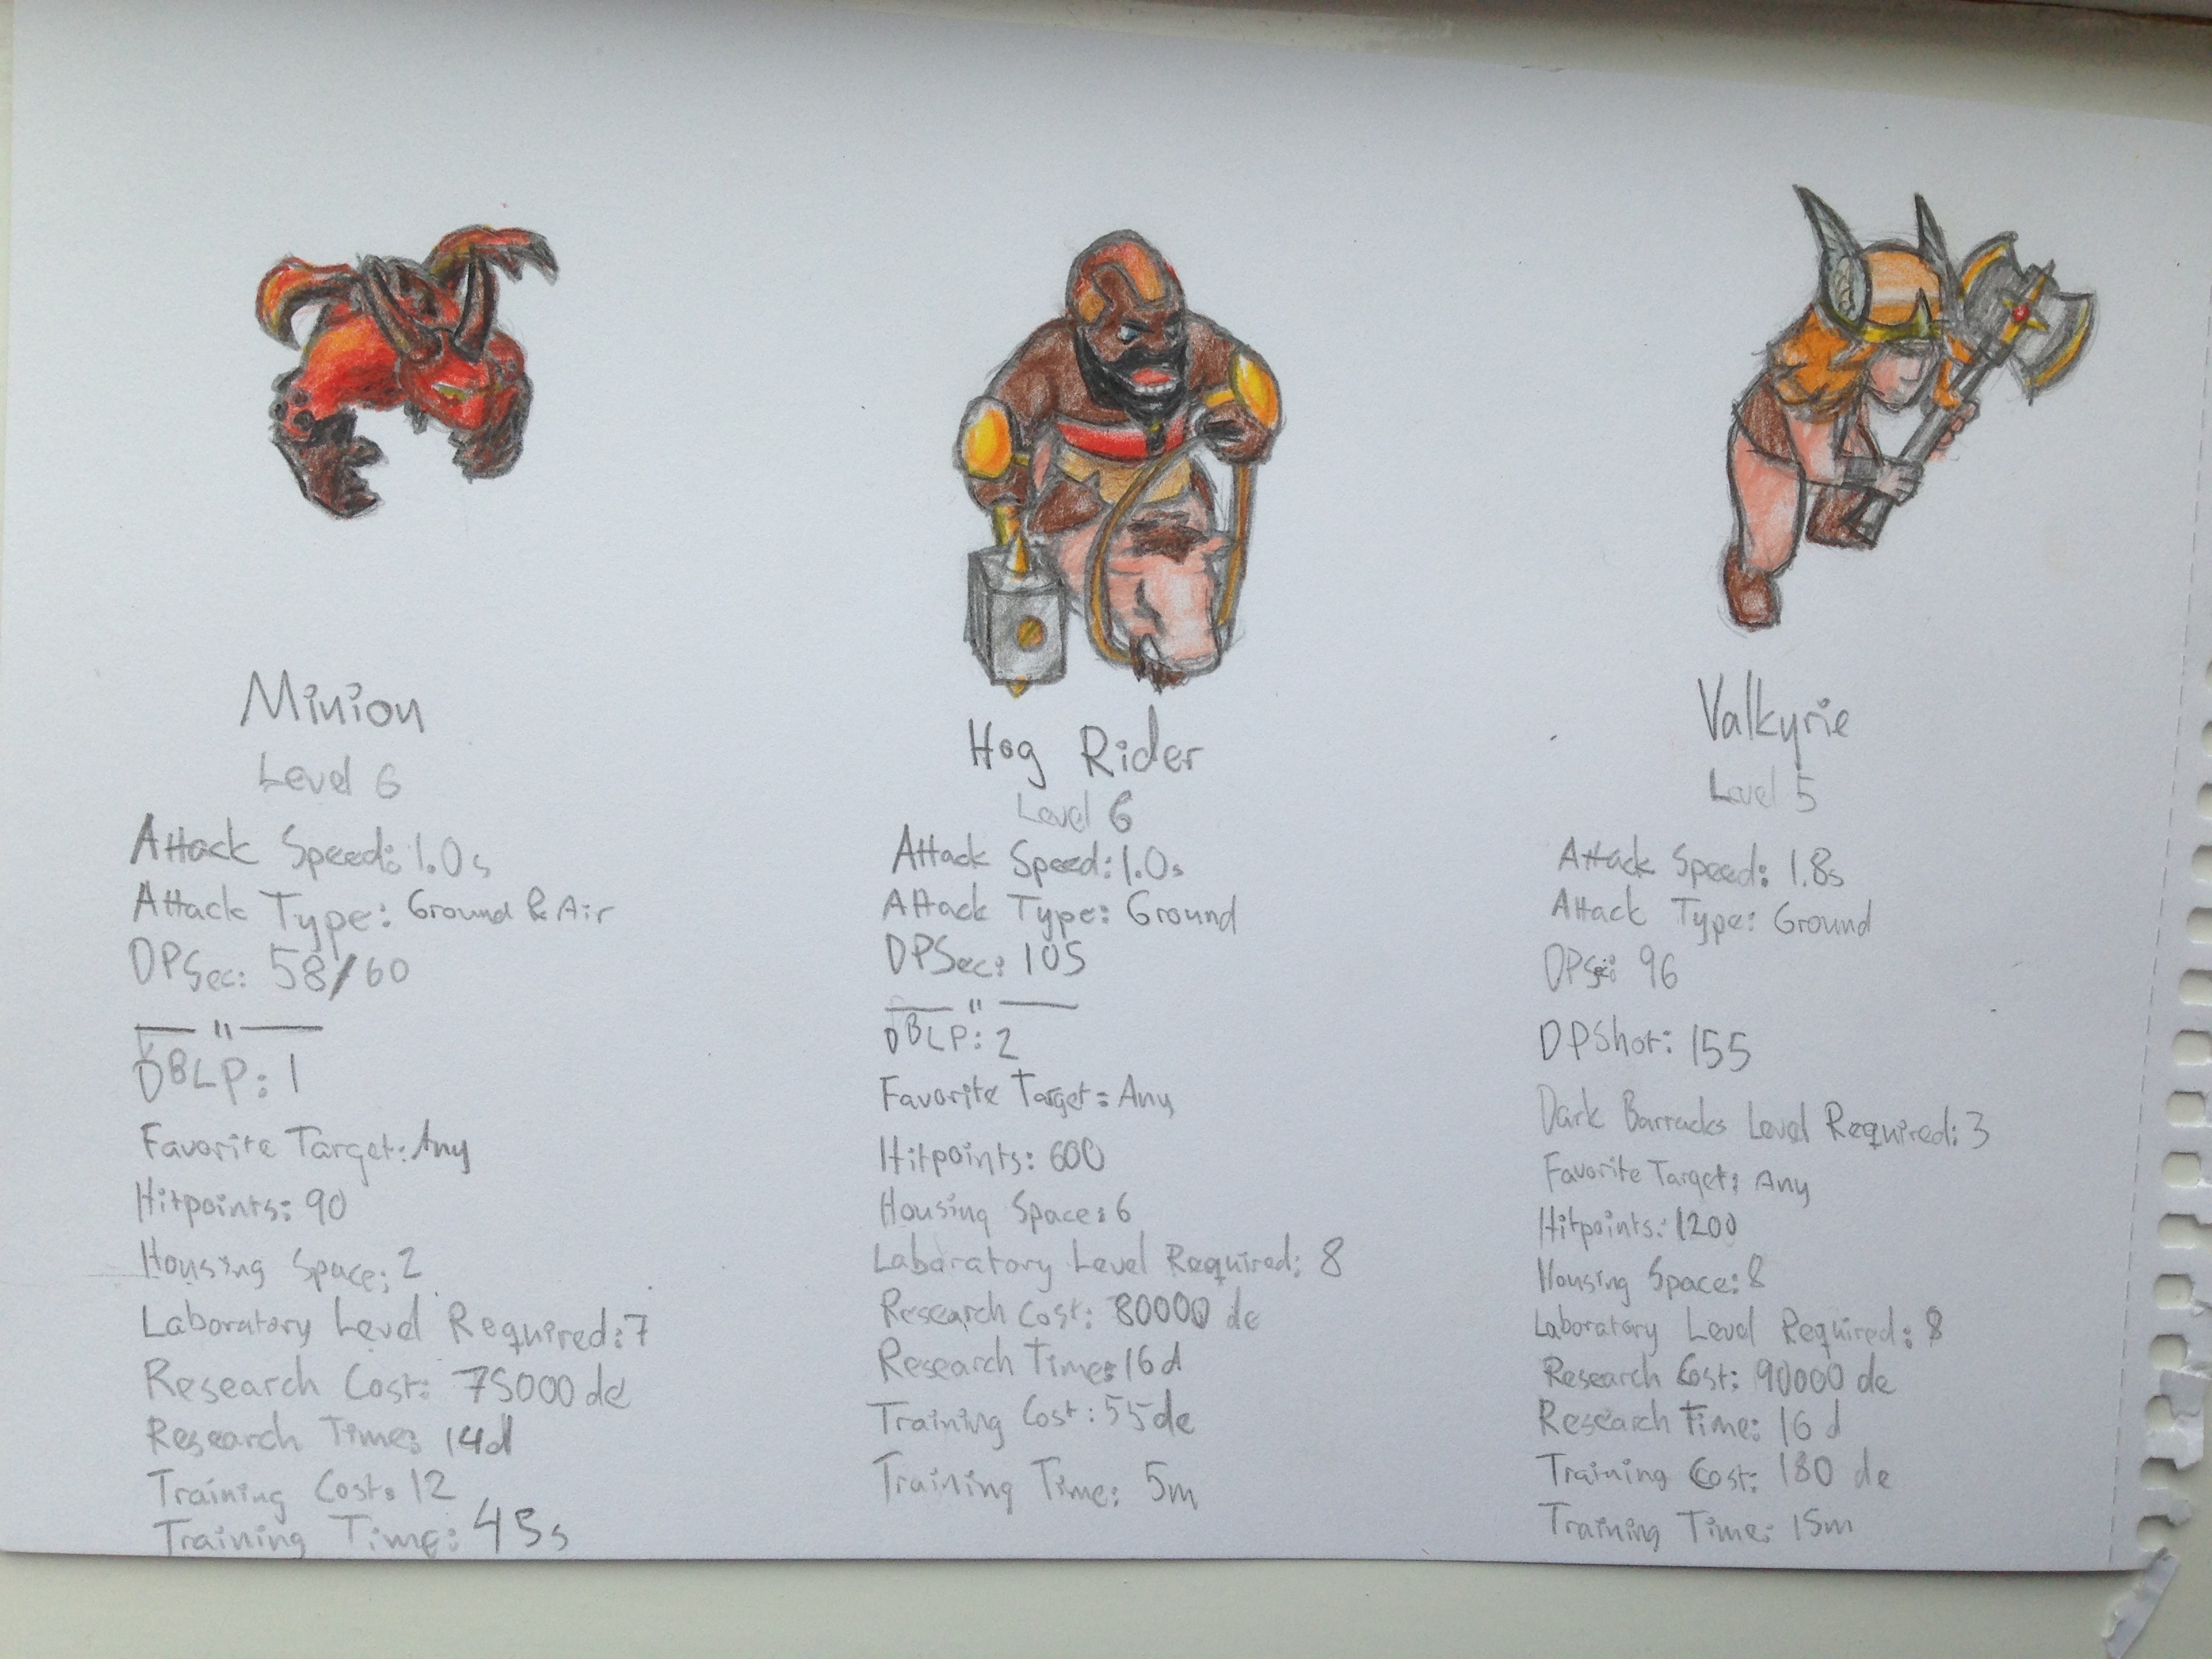 Minion
Level 6
Attack Speed: 1.0s
Attack Type: Ground & Air
DPSec: 58/60
— " —
DBLP: 1
Favorite Target: Any
Hitpoints: 90
Housing Space: 2
Laboratory Level Required: 7
Research Cost: 75000 de
Research Time: 14d
Training Cost: 12
Training Time: 45s
Hog Rider
Level 6
Attack Speed: 1.0s
Attack Type: Ground
DPSec: 105
— " —
DBLP: 2
Favorite Target: Any
Hitpoints: 600
Housing Space: 6
Laboratory Level Required: 8
Research Cost: 80000 de
Research Time: 16d
Training Cost: 55 de
Training Time: 5m
Valkyrie
Level 5
Attack Speed: 1.8s
Attack Type: Ground
DPSec: 96
DPShot: 155
Dark Barracks Level Required: 3
Favorite Target: Any
Hitpoints: 1200
Housing Space: 8
Laboratory Level Required: 8
Research Cost: 90000 de
Research Time: 16 d
Training Cost: 130 de
Training Time: 15m